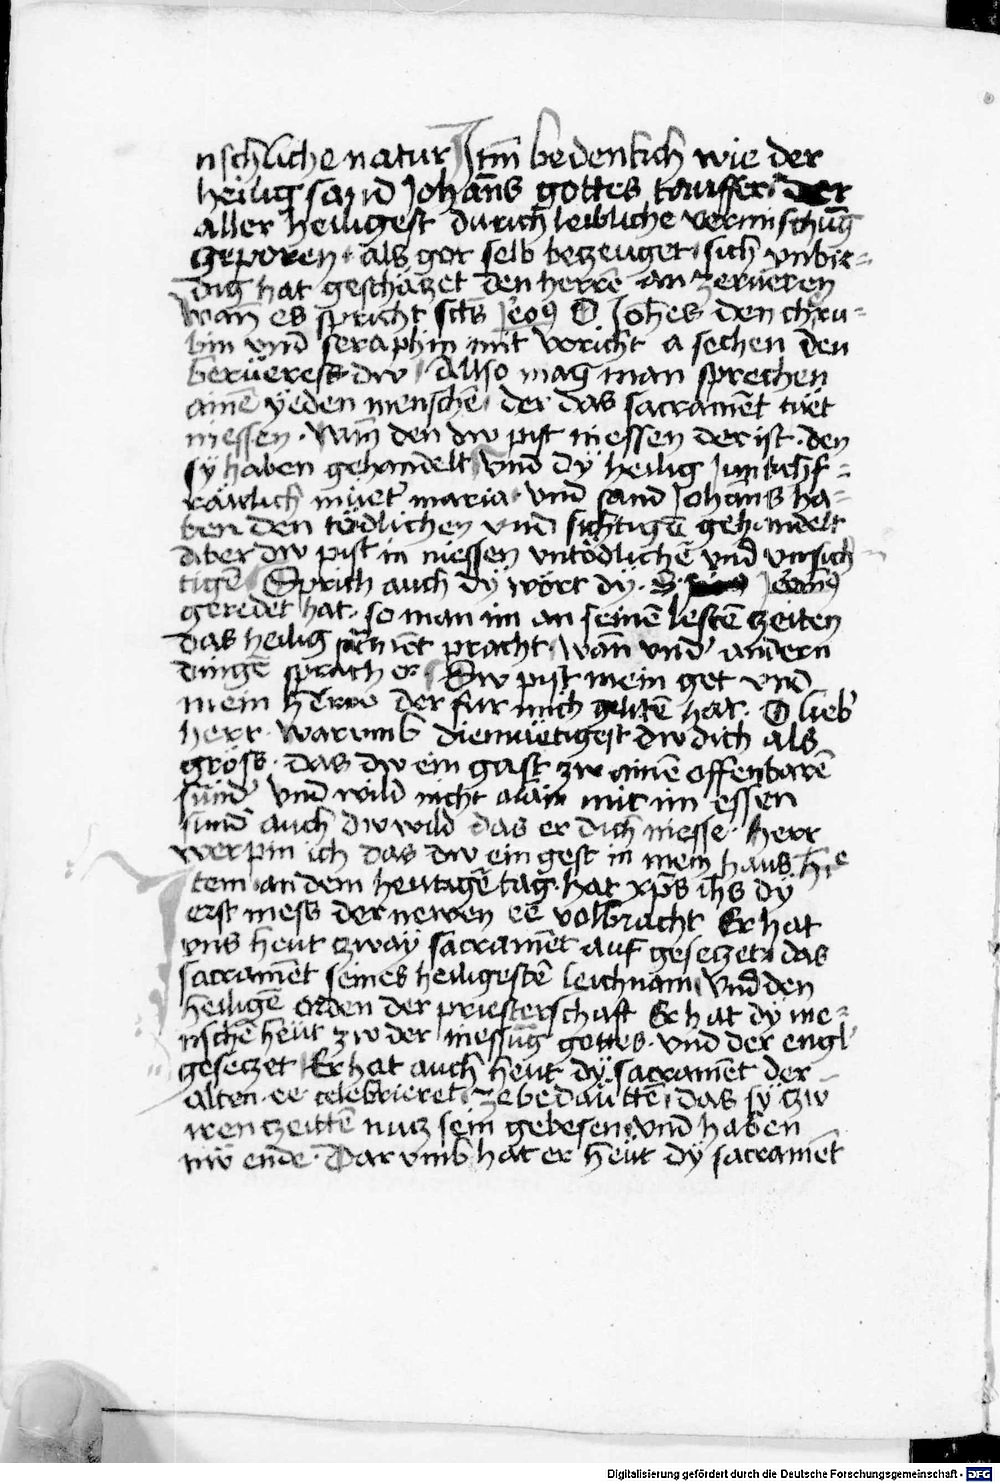 nschliche natur Itm̄ bedenkch wie der
heilig sand Johan̄s gottes tauffer der
aller heiligest durich leibliche vermischūg
geporen · als got selb beczeuget · sich vnbir=
dig hat geschäczet den herrē an zerueren
Wan̄ es spricht sct̄s O Joh̄es den cheru=
bin vnd seraphin mit voricht a sechen den
berüerest dw · Allso mag man sprechen
ainē yeden menschē der das sacramēt tuet
niessen · Wan̄ den dw pist niessen der ist · den
sÿ haben gehandelt Vnd dÿ heilig Junkchf=
räwlich müet' maria · vnd sand Johan̄s ha=
ben den tödlichen vnd sichtigē gehandelt
aber dw pist in niessen vntödlichē vnd vnsich=
tigē Sprich auch dÿ wort dÿ · S ·
geredet hat · so man im an seinē lestē czeiten
das heilig sacrament pracht · Wan̄ vnd' andern
dingē sprach er · Dw pist mein got vnd
mein herre der fur mich gelitē hat · O lieb'
herr · warumb diemüetigest dw dich als
gröss · das dw ein gast zw ainē offenbarē
sünd' vnd wild nicht alain mit im essen
sund' auch dw wild das er dich niesse · herr
wer pin ich das dw ein gest in mein haus hie
Item an dem heutigē tag · hat xp̄s ih̄s dÿ
erst mess der newen ee volbracht Er hat
vns heut czwaÿ sacramēt auf geseczet · das
sacramēt seines heiligestē leichnam Vnd den
heiligē orden der priesterschaft Er hat dÿ me=
nschē heüt zw der niessūg gottes · vnd der engl'
geseczet Er hat auch heut dÿ sacramēt der
alten · ee celebrieret · ze bedaüttē · das sÿ czw
iren czeittē nucz sein gebesen · vnd haben
nw ende · Dar vmb hat er heüt dÿ sacramēt
Digitalisierung gefördert durch die Deutsche Forschungsgemeinschaft - DFG